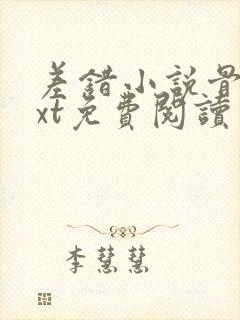 差錯小說最
xt免費閱讀
李慧慧